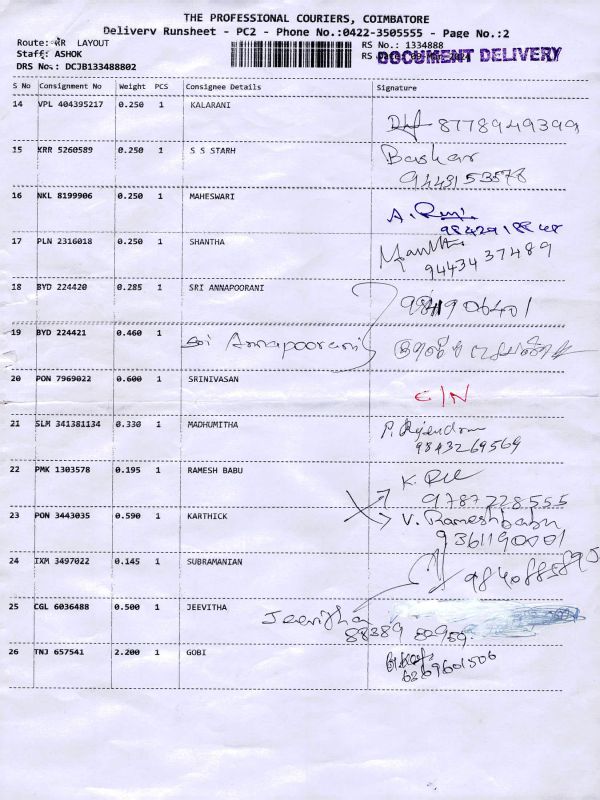 THE PROFESSIONAL COURIERS, COIMBATORE
Delivery Runsheet - PC2 - Phone No.:0422-3505555 - Page No.:2
Route: WR LAYOUT
Staff: ASHOK
DRS No.: DCJB133488802
RS No.: 1334888
RS
DOCUMENT DELIVERY
S No Consignment No Weight PCS Consignee Details Signature
14 VPL 404395217 0.250 1 KALARANI
8778949399
15 KRR 5260589 0.250 1 S S STARH Baskar
9443153578
16 NKL 8199906 0.250 1 MAHESWARI A. Rani
17 PLN 2316018 0.250 1 SHANTHA
9443437489
18 BYD 224420 0.285 1 SRI ANNAPOORANI
19 BYD 224421 0.460 1 Sri Annapoorani
20 PON 7969022 0.600 1 SRINIVASAN E/N
21 SLM 341381134 0.330 1 MADHUMITHA P. Rajendran
9843269569
22 PMK 1303578 0.195 1 RAMESH BABU K.
9787228555
23 PON 3443035 0.590 1 KARTHICK V. Rameshbabu
9361190001
24 IXM 3497022 0.145 1 SUBRAMANIAN 9840885895
25 CGL 6036488 0.500 1 JEEVITHA Jeevitha
26 TNJ 657541 2.200 1 GOBI
6369601506